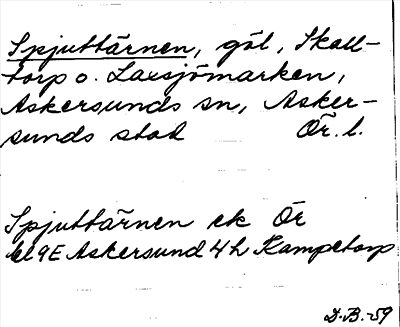 Spjuttärnen, göl, Skall-
torp o. Laxsjömarken,
Askersunds sn, Asker-
sunds stad Ör. l.
Spjuttärnen ek Ör
bl 9E Askersund 4h Kampetorp
D.B.-59